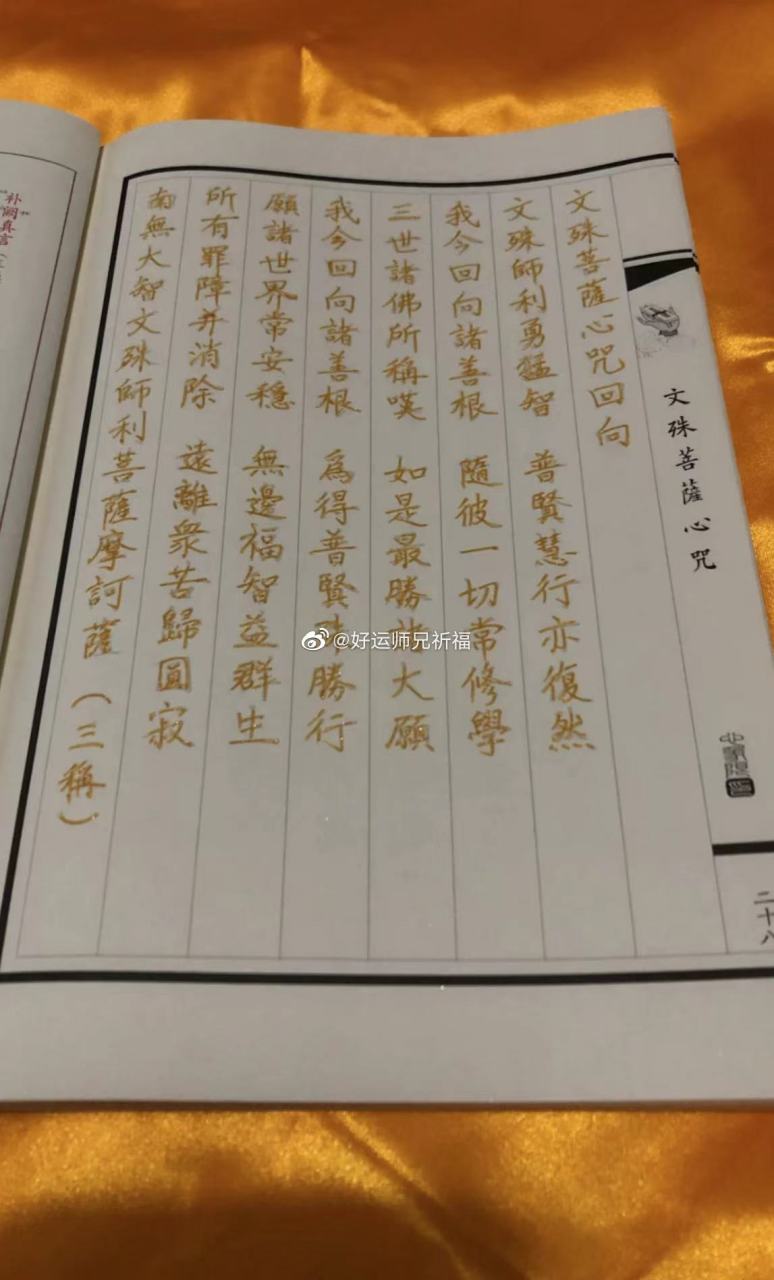 文殊菩薩心咒
二十八
文殊菩薩心咒回向
文殊師利勇猛智 普賢慧行亦復然
我今回向諸善根 隨彼一切常修學
三世諸佛所稱嘆 如是最勝諸大願
我今回向諸善根 爲得普賢殊勝行
願諸世界常安穩 無邊福智益群生
所有罪障并消除 遠離衆苦歸圓寂
南無大智文殊師利菩薩摩訶薩（三稱）
补阙真言
@好运师兄祈福